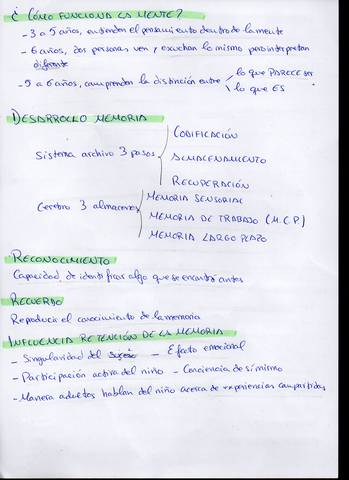 ¿ CÓMO FUNCIONA LA MENTE?
- 3 a 5 años, entienden el pensamiento dentro de la mente
- 6 años, dos personas ven y escuchan lo mismo pero interpretan
diferente
- 5 a 6 años, comprenden la distinción entre lo que PARECE ser
lo que ES
DESARROLLO MEMORIA
CODIFICACIÓN
Sistema archivo 3 pasos
ALMACENAMIENTO
RECUPERACIÓN
Cerebro 3 almacenes
MEMORIA SENSORIAL
MEMORIA DE TRABAJO (M.C.P)
MEMORIA LARGO PLAZO
RECONOCIMIENTO
Capacidad de identificar algo que se encontró antes
RECUERDO
Reproducir el conocimiento de la memoria
INFLUENCIA RETENCIÓN DE LA MEMORIA
- Singularidad del suceso - Efecto emocional
- Participación activa del niño - Conciencia de sí mismo
- Manera adultos hablan del niño acerca de experiencias compartidas